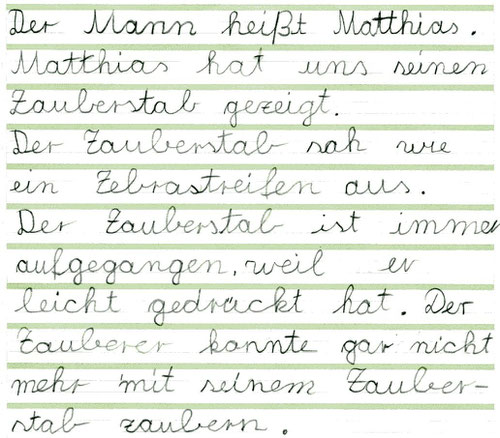 Der Mann heißt Matthias.
Matthias hat uns seinen
Zauberstab gezeigt.
Der Zauberstab sah wie
ein Zebrastreifen aus.
Der Zauberstab ist immer
aufgegangen, weil er
leicht gedrückt hat. Der
Zauberer konnte gar nicht
mehr mit seinem Zauber-
stab zaubern.